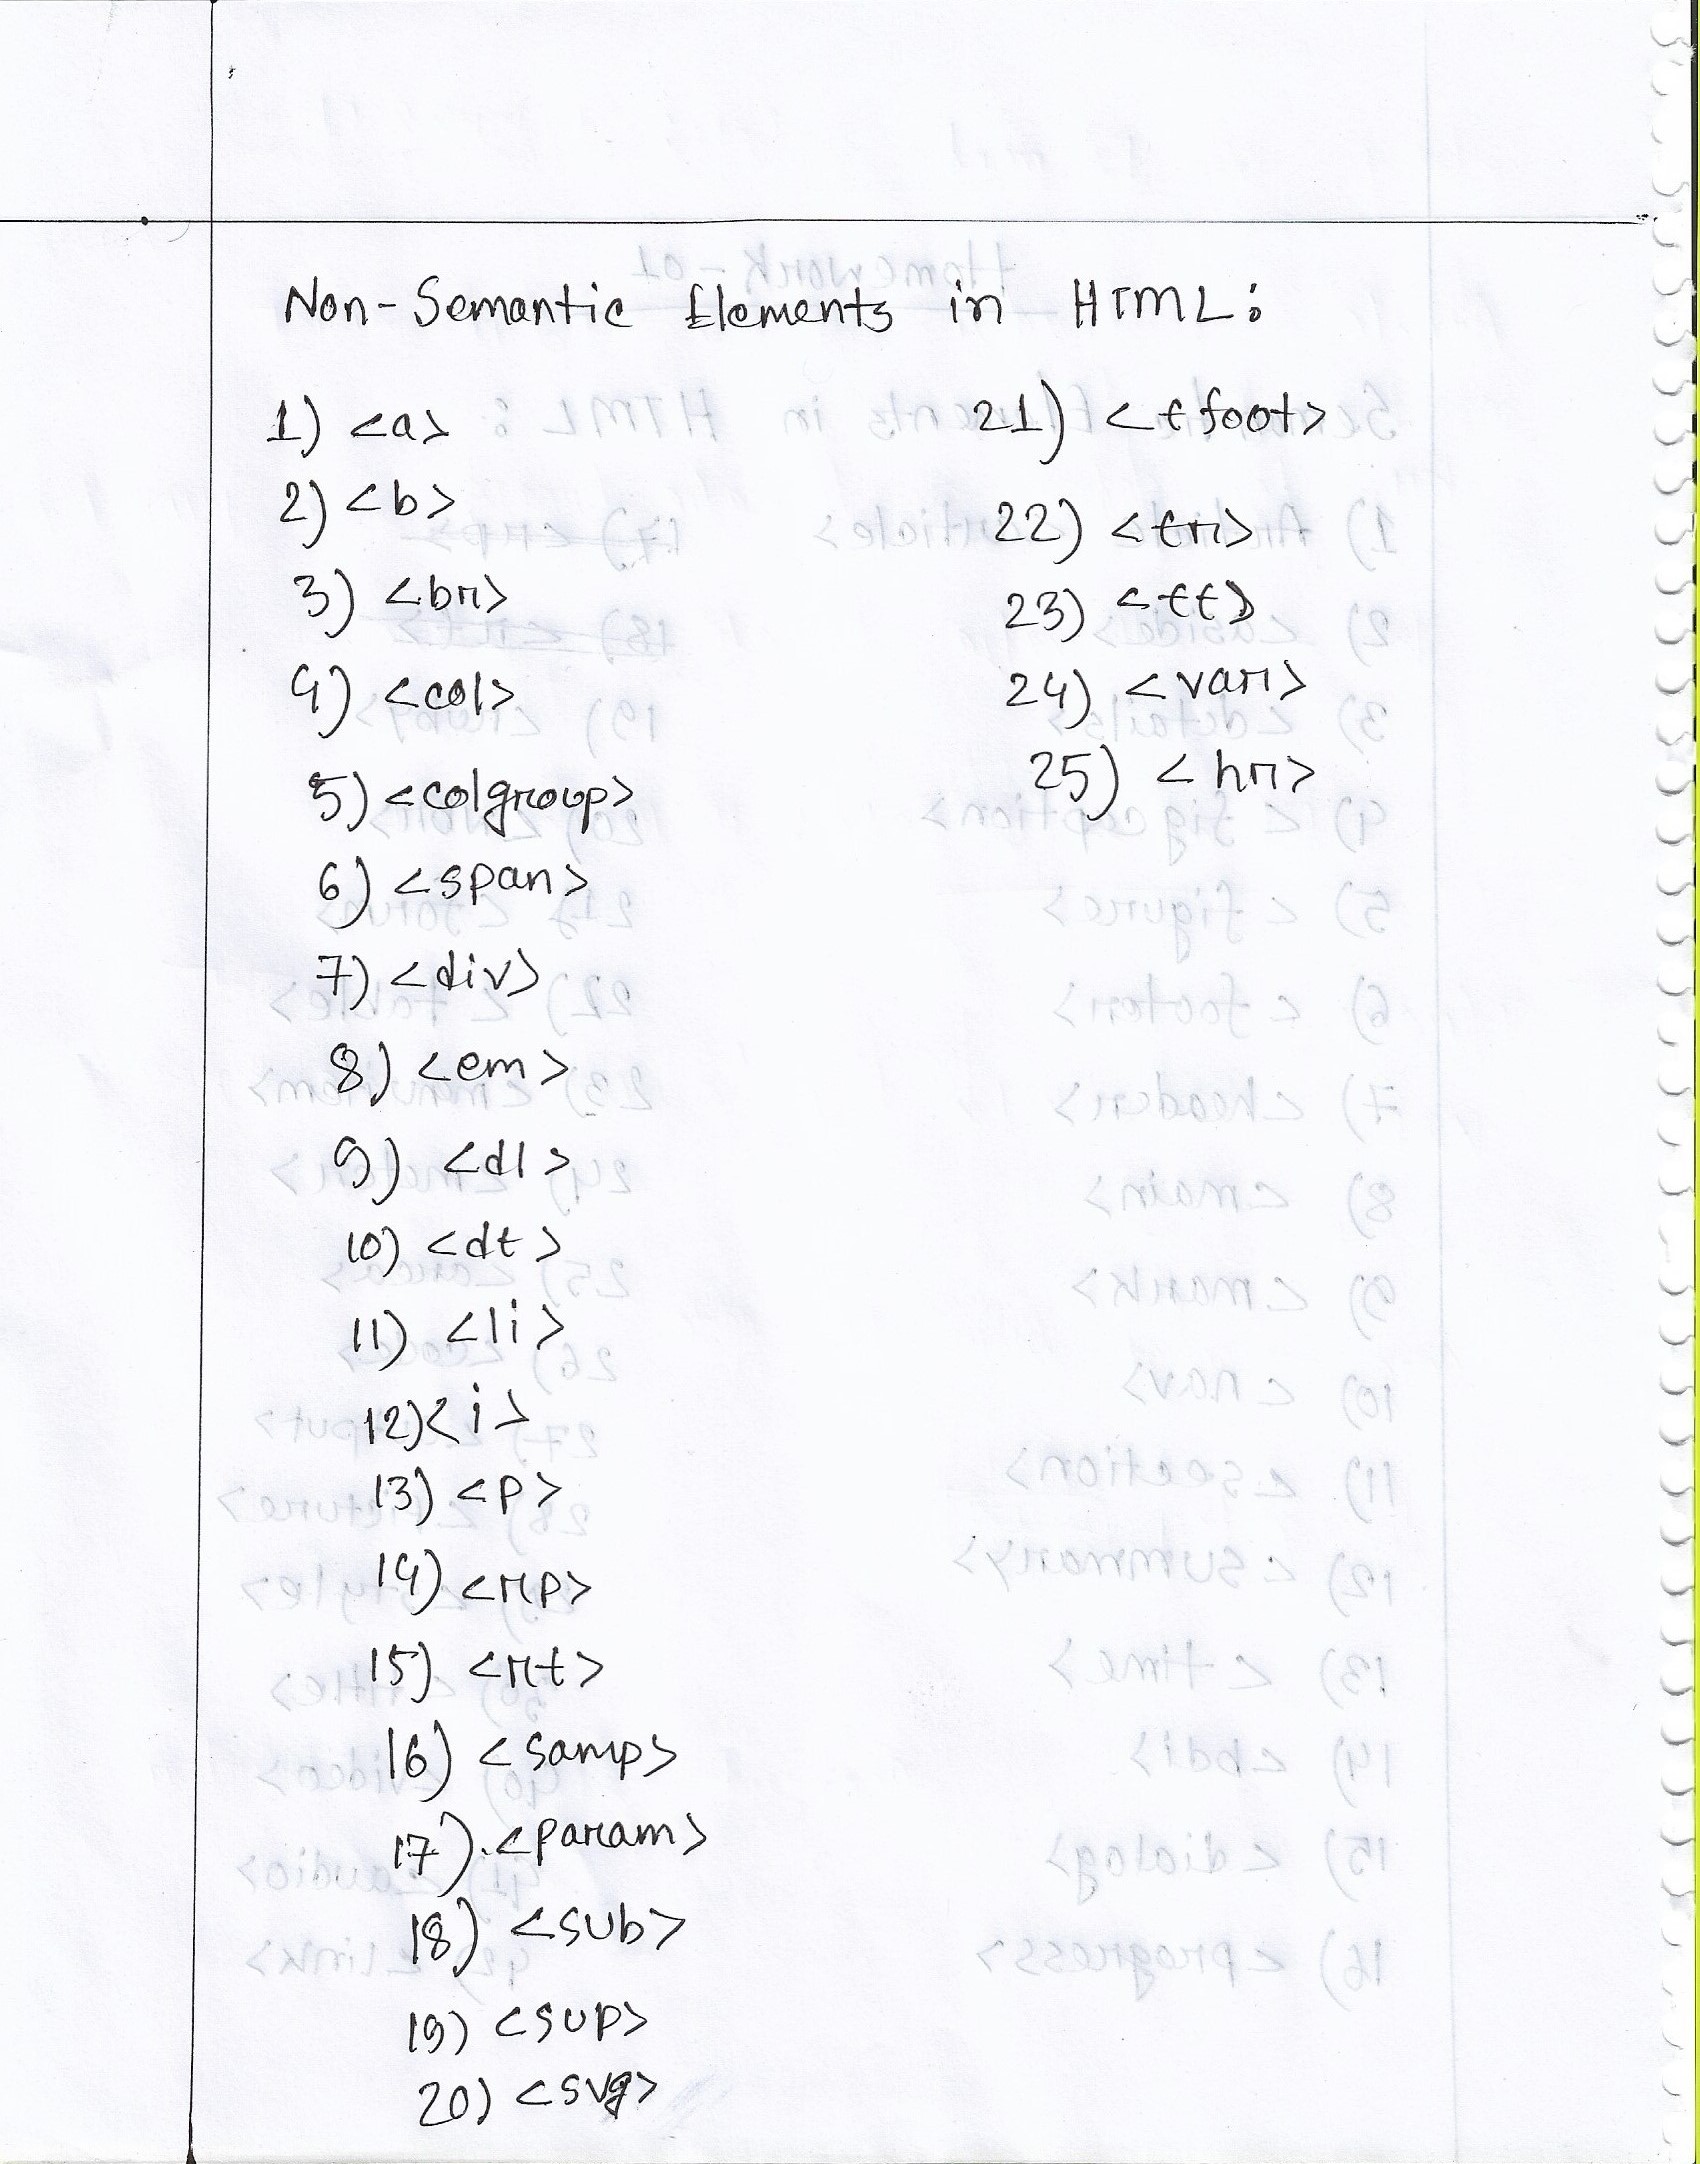 Non-Semantic Elements in HTML:
1) <a>
2) <b>
3) <br>
4) <col>
5) <colgroup>
6) <span>
7) <div>
8) <em>
9) <dl>
10) <dt>
11) <li>
12) <i>
13) <p>
14) <rp>
15) <rt>
16) <samp>
17) <param>
18) <sub>
19) <sup>
20) <svg>
21) <tfoot>
22) <tr>
23) <tt>
24) <var>
25) <hr>